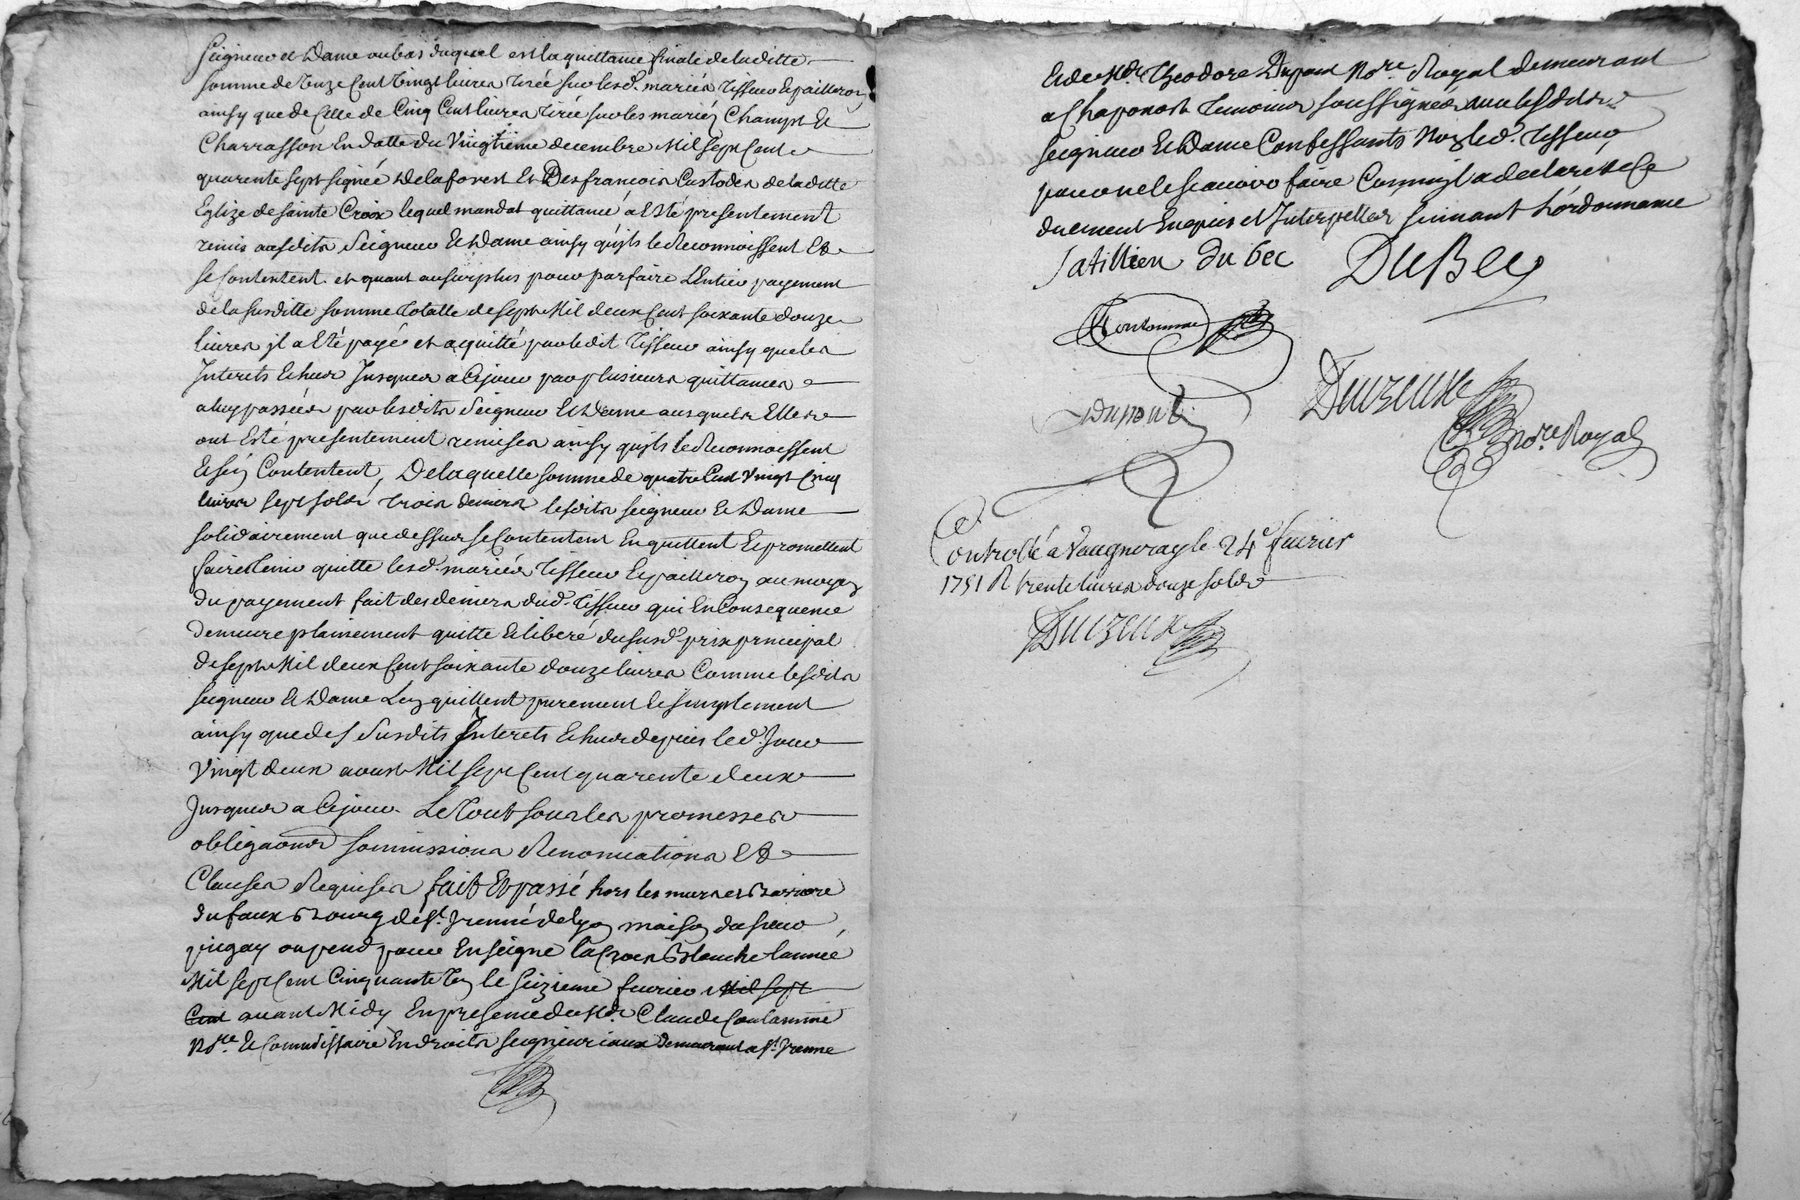 Seigneur et Dame au bas duquel est la quittance finale de laditte
somme de onze Cent vingt livres tirée sur lesd. mariés Tisseur Et pailleron
ainsy que de Celle de Cinq Cent livres tirée sur les mariés Champt Et
Charrasson En datte du vingtième decembre Mil sept Cent
quarente sept signée Delaforest Et Desfrancois Custodes de laditte
Eglize de Sainte Croix lequel mandat quittancé a Esté presentement
remis ausdits Seigneur Et Dame ainsy qu'jls le Reconnoissent Et
se Contentent. et quant au surplus pour parfaire L'Entier payement
de la susditte somme totalle de sept Mil deux Cent soixante douze
livres jl a Eté payé et acquitté par le dit Tisseur ainsy que les
Interets Echeus Jusques a Ce jour par plusieurs quittances
a luy passées par lesdits Seigneur Et Dame ausquels Elles
ont Esté presentement remises ainsy qu'jls le Reconnoissent
Et s'en Contentent, De laquelle somme de quatre Cent vingt Cinq
livres sept sols trois deniers lesdits seigneur Et Dame
solidairement que dessus se Contentent En quittent Et promettent
faire tenir quitte lesd. mariés Tisseur Et pailleron au moyen
du payement fait des deniers dud. Tisseur qui En Consequence
demeure plainement quitte Et libéré du susd. prix principal
de sept Mil deux Cent soixante douze livres Comme lesdits
seigneur Et Dame L'en quittent purement Et simplement
ainsy que des susdits Interets Echus depuis led. Jour
vingt deux aoust Mil sept Cent quarente deux
Jusques a Ce jour. Le Tout sous les promesses
obligaons soumissions Renonciations Et
Clauses Requises fait Et passé hors les murs et Barriere
du faux Bourg de St. Jrenné de Lyon maison du sieur
pugay ou pend pour Enseigne la Croix Blanche l'année
Mil sept Cent Cinquante Un le seizieme fevrier Mil sept
Cent avant Midy En presence de Me. Claude Coulamine
Nore. Et Commissaire En droits seigneuriaux demeurant a St. Jrenné
Et de Me. Theodore Dupont Nore. Royal demeurant
a Chaponost temoins soussignés avec lesdits
seigneur Et Dame Confessants Non led. Tisseur
pour ne le scavoir faire Comme jl a declaré de Ce
duement Enquis et Interpellé suivant L'ordonnance
Satillieu du bec DuBec
Coulamine
Dupont
Duizeux
Nore. Royal
Controllé a Vaugneray le 24e fevrier
1751 R trente livres douze sols
Duizeux